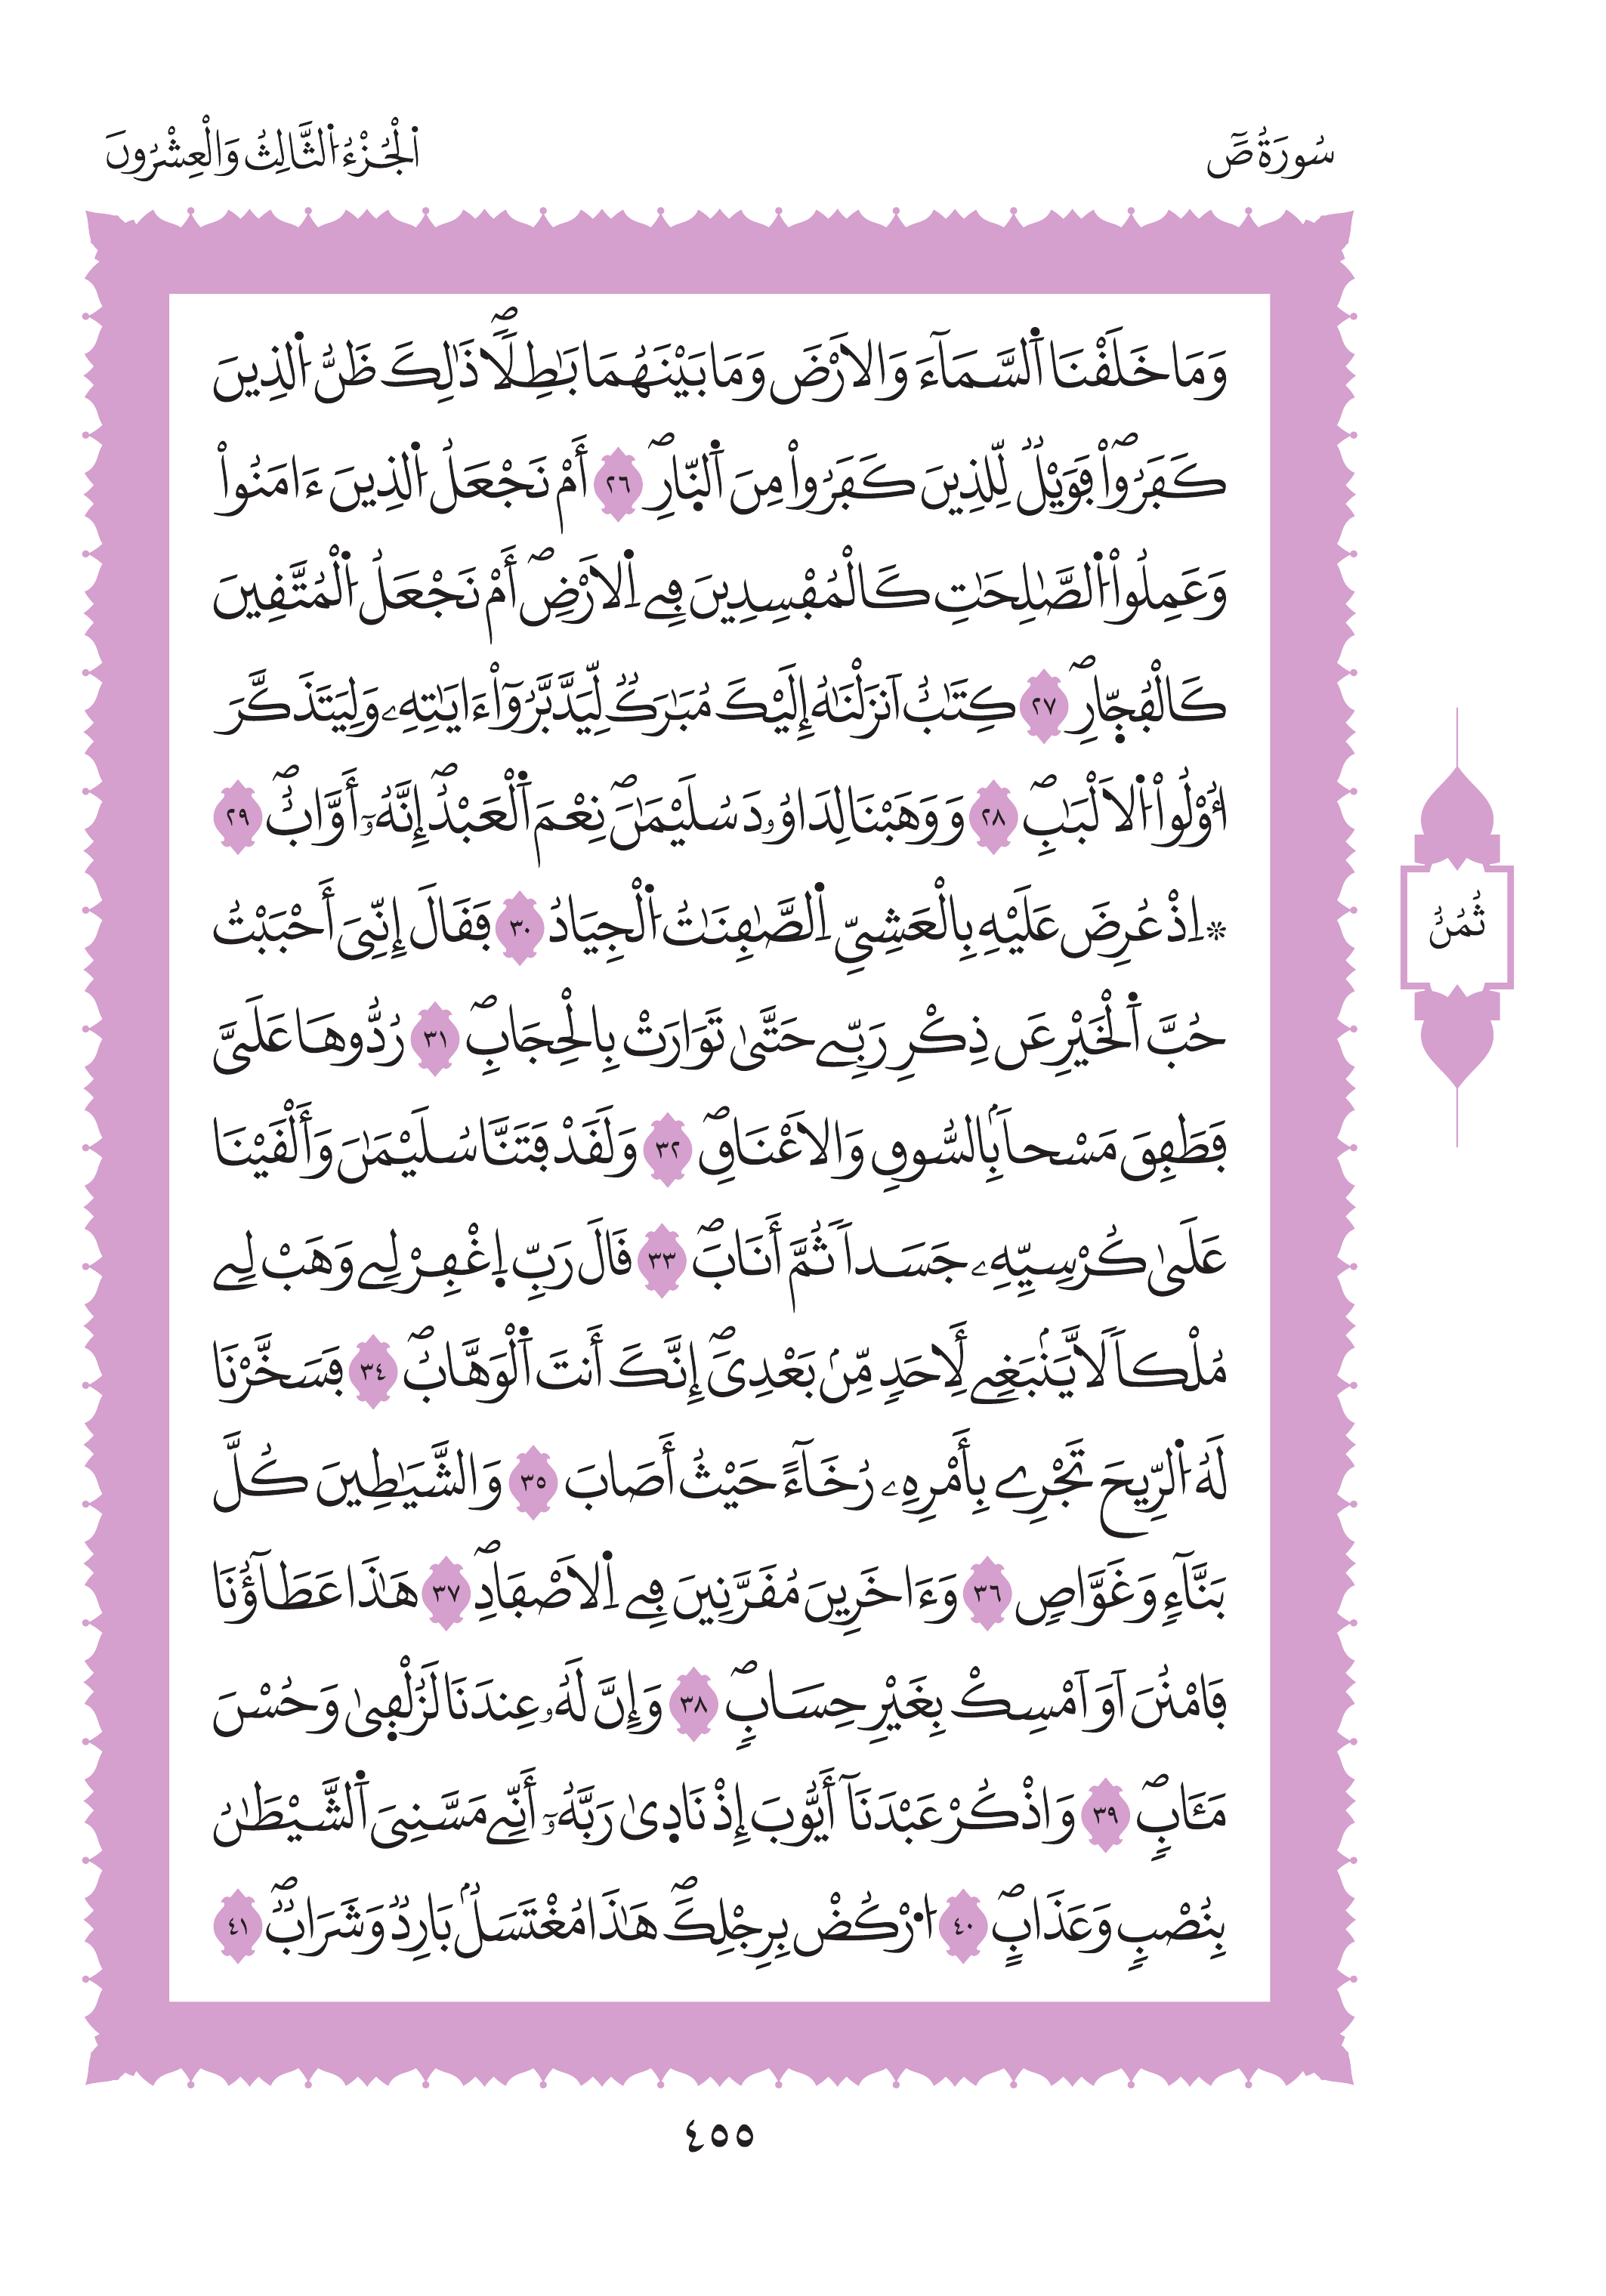 سُورَةُ صَٓ
اُ۬لْجُزْءُ اُ۬لثَّالِثُ وَالْعِشْرُونَ
وَمَا خَلَفْنَا اَ۬لسَّمَآءَ وَالَارْضَ وَمَا بَيْنَهُمَا بَٰطِلاٗۖ ذَٰلِكَ ظَنُّ اُ۬لذِينَ
كَفَرُواْۖ فَوَيْلٞ لِّلذِينَ كَفَرُواْ مِنَ اَ۬لنّ۪ارِۖ ٢٦ أَمْ نَجْعَلُ اُ۬لذِينَ ءَامَنُواْ
وَعَمِلُواْ اُ۬لصَّٰلِحَٰتِ كَالْمُفْسِدِينَ فِے اِ۬لَارْضِۖ أَمْ نَجْعَلُ اُ۬لْمُتَّفِينَ
كَالْفُجّ۪ارِۖ ٢٧ كِتَٰبٌ اَنزَلْنَٰهُ إِلَيْكَ مُبَٰرَكٞ لِّيَدَّبَّرُوٓاْ ءَايَٰتِهِۦ وَلِيَتَذَكَّرَ
أُوْلُواْ اُ۬لَالْبَٰبِۖ ٢٨ وَوَهَبْنَا لِدَاوُۥدَ سُلَيْمَٰنَۖ نِعْمَ اَ۬لْعَبْدُۖ إِنَّهُۥٓ أَوَّابٌۖ ٢٩
۞اِذْ عُرِضَ عَلَيْهِ بِالْعَشِيِّ اِ۬لصَّٰفِنَٰتُ اُ۬لْجِيَادُ ٣٠ فَقَالَ إِنِّيَ أَحْبَبْتُ
حُبَّ اَ۬لْخَيْرِ عَن ذِكْرِ رَبِّے حَتَّىٰ تَوَارَتْ بِالْحِجَابِۖ ٣١ رُدُّوهَا عَلَيَّ
فَطَفِقَ مَسْحاَۢ بِالسُّوقِ وَالَاعْنَاقِۖ ٣٢ وَلَقَدْ فَتَنَّا سُلَيْمَٰنَ وَأَلْقَيْنَا
عَلَىٰ كُرْسِيِّهِۦ جَسَداٗ ثُمَّ أَنَابَۖ ٣٣ قَالَ رَبِّ اِ۪غْفِرْ لِے وَهَبْ لِے
مُلْكاٗ لَّا يَنۢبَغِے لِأَحَدٖ مِّنۢ بَعْدِيَۖ إِنَّكَ أَنتَ اَ۬لْوَهَّابُۖ ٣٤ فَسَخَّرْنَا
لَهُ اُ۬لرِّيحَ تَجْرِے بِأَمْرِهِۦ رُخَآءً حَيْثُ أَصَابَ ٣٥ وَالشَّيَٰطِينَ كُلَّ
بَنَّآءٖ وَغَوَّاصٖ ٣٦ وَءَاخَرِينَ مُقَرَّنِينَ فِے اِ۬لَاصْفَادِۖ ٣٧ هَٰذَا عَطَآؤُنَا
فَامْنُنَ اَوَ اَمْسِكْ بِغَيْرِ حِسَابٖۖ ٣٨ وَإِنَّ لَهُۥ عِندَنَا لَزُلْف۪ىٰ وَحُسْنَ
مَـَٔابٖۖ ٣٩ وَاذْكُرْ عَبْدَنَآ أَيُّوبَ إِذْ نَاد۪ىٰ رَبَّهُۥٓ أَنِّے مَسَّنِيَ اَ۬لشَّيْطَٰنُ
بِنُصْبٖ وَعَذَابٖۖ ٤٠ اُ۟رْكُضْ بِرِجْلِكَۖ هَٰذَا مُغْتَسَلُۢ بَارِدٞ وَشَرَابٞۖ ٤١
ثُمُنٌ
٤٥٥